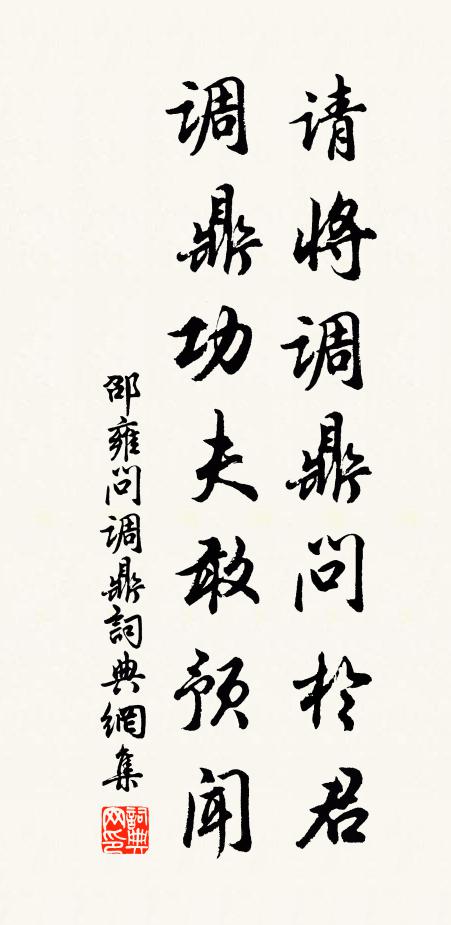 请将调鼎问於君
调鼎功夫敢预闻
邵雍问调鼎詞典網集
詞典网印